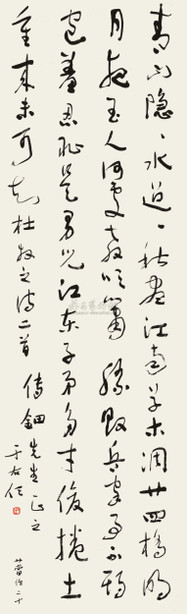 青山隐、水迢、秋尽江南草未凋廿四桥明
月夜玉人何处教吹箫 胜败兵家事不期
包羞忍耻是男儿江东子弟多才俊捲土
重来未可知 杜牧之诗二首
传钿先生正之
于右任